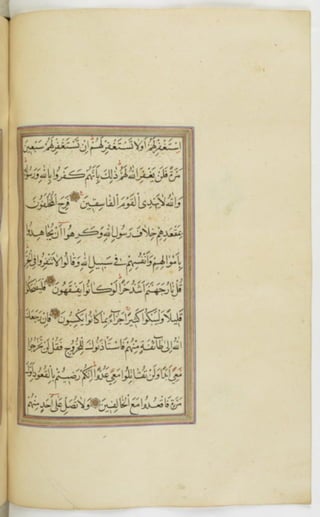 اِسْتَغْفِرْ لَهُمْ اَوْ لَا تَسْتَغْفِرْ لَهُمْ اِنْ تَسْتَغْفِرْ لَهُمْ سَبْعِينَ
مَرَّةً فَلَنْ يَغْفِرَ اللّٰهُ لَهُمْ ذٰلِكَ بِاَنَّهُمْ كَفَرُوا بِاللّٰهِ وَرَسُولِهِ
وَاللّٰهُ لَا يَهْدِى الْقَوْمَ الْفَاسِقِينَ فَرِحَ الْمُخَلَّفُونَ
بِمَقْعَدِهِمْ خِلَافَ رَسُولِ اللّٰهِ وَكَرِهُوا اَنْ يُجَاهِدُوا
بِاَمْوَالِهِمْ وَاَنْفُسِهِمْ فِى سَبِيلِ اللّٰهِ وَقَالُوا لَا تَنْفِرُوا فِى الْحَرِّ
قُلْ نَارُ جَهَنَّمَ اَشَدُّ حَرًّا لَوْ كَانُوا يَفْقَهُونَ فَلْيَضْحَكُوا
قَلِيلًا وَلْيَبْكُوا كَثِيرًا جَزَاءً بِمَا كَانُوا يَكْسِبُونَ فَاِنْ رَجَعَكَ
اللّٰهُ اِلٰى طَائِفَةٍ مِنْهُمْ فَاسْتَأْذَنُوكَ لِلْخُرُوجِ فَقُلْ لَنْ تَخْرُجُوا
مَعِىَ اَبَدًا وَلَنْ تُقَاتِلُوا مَعِىَ عَدُوًّا اِنَّكُمْ رَضِيتُمْ بِالْقُعُودِ اَوَّلَ
مَرَّةٍ فَاقْعُدُوا مَعَ الْخَالِفِينَ وَلَا تُصَلِّ عَلٰى اَحَدٍ مِنْهُمْ